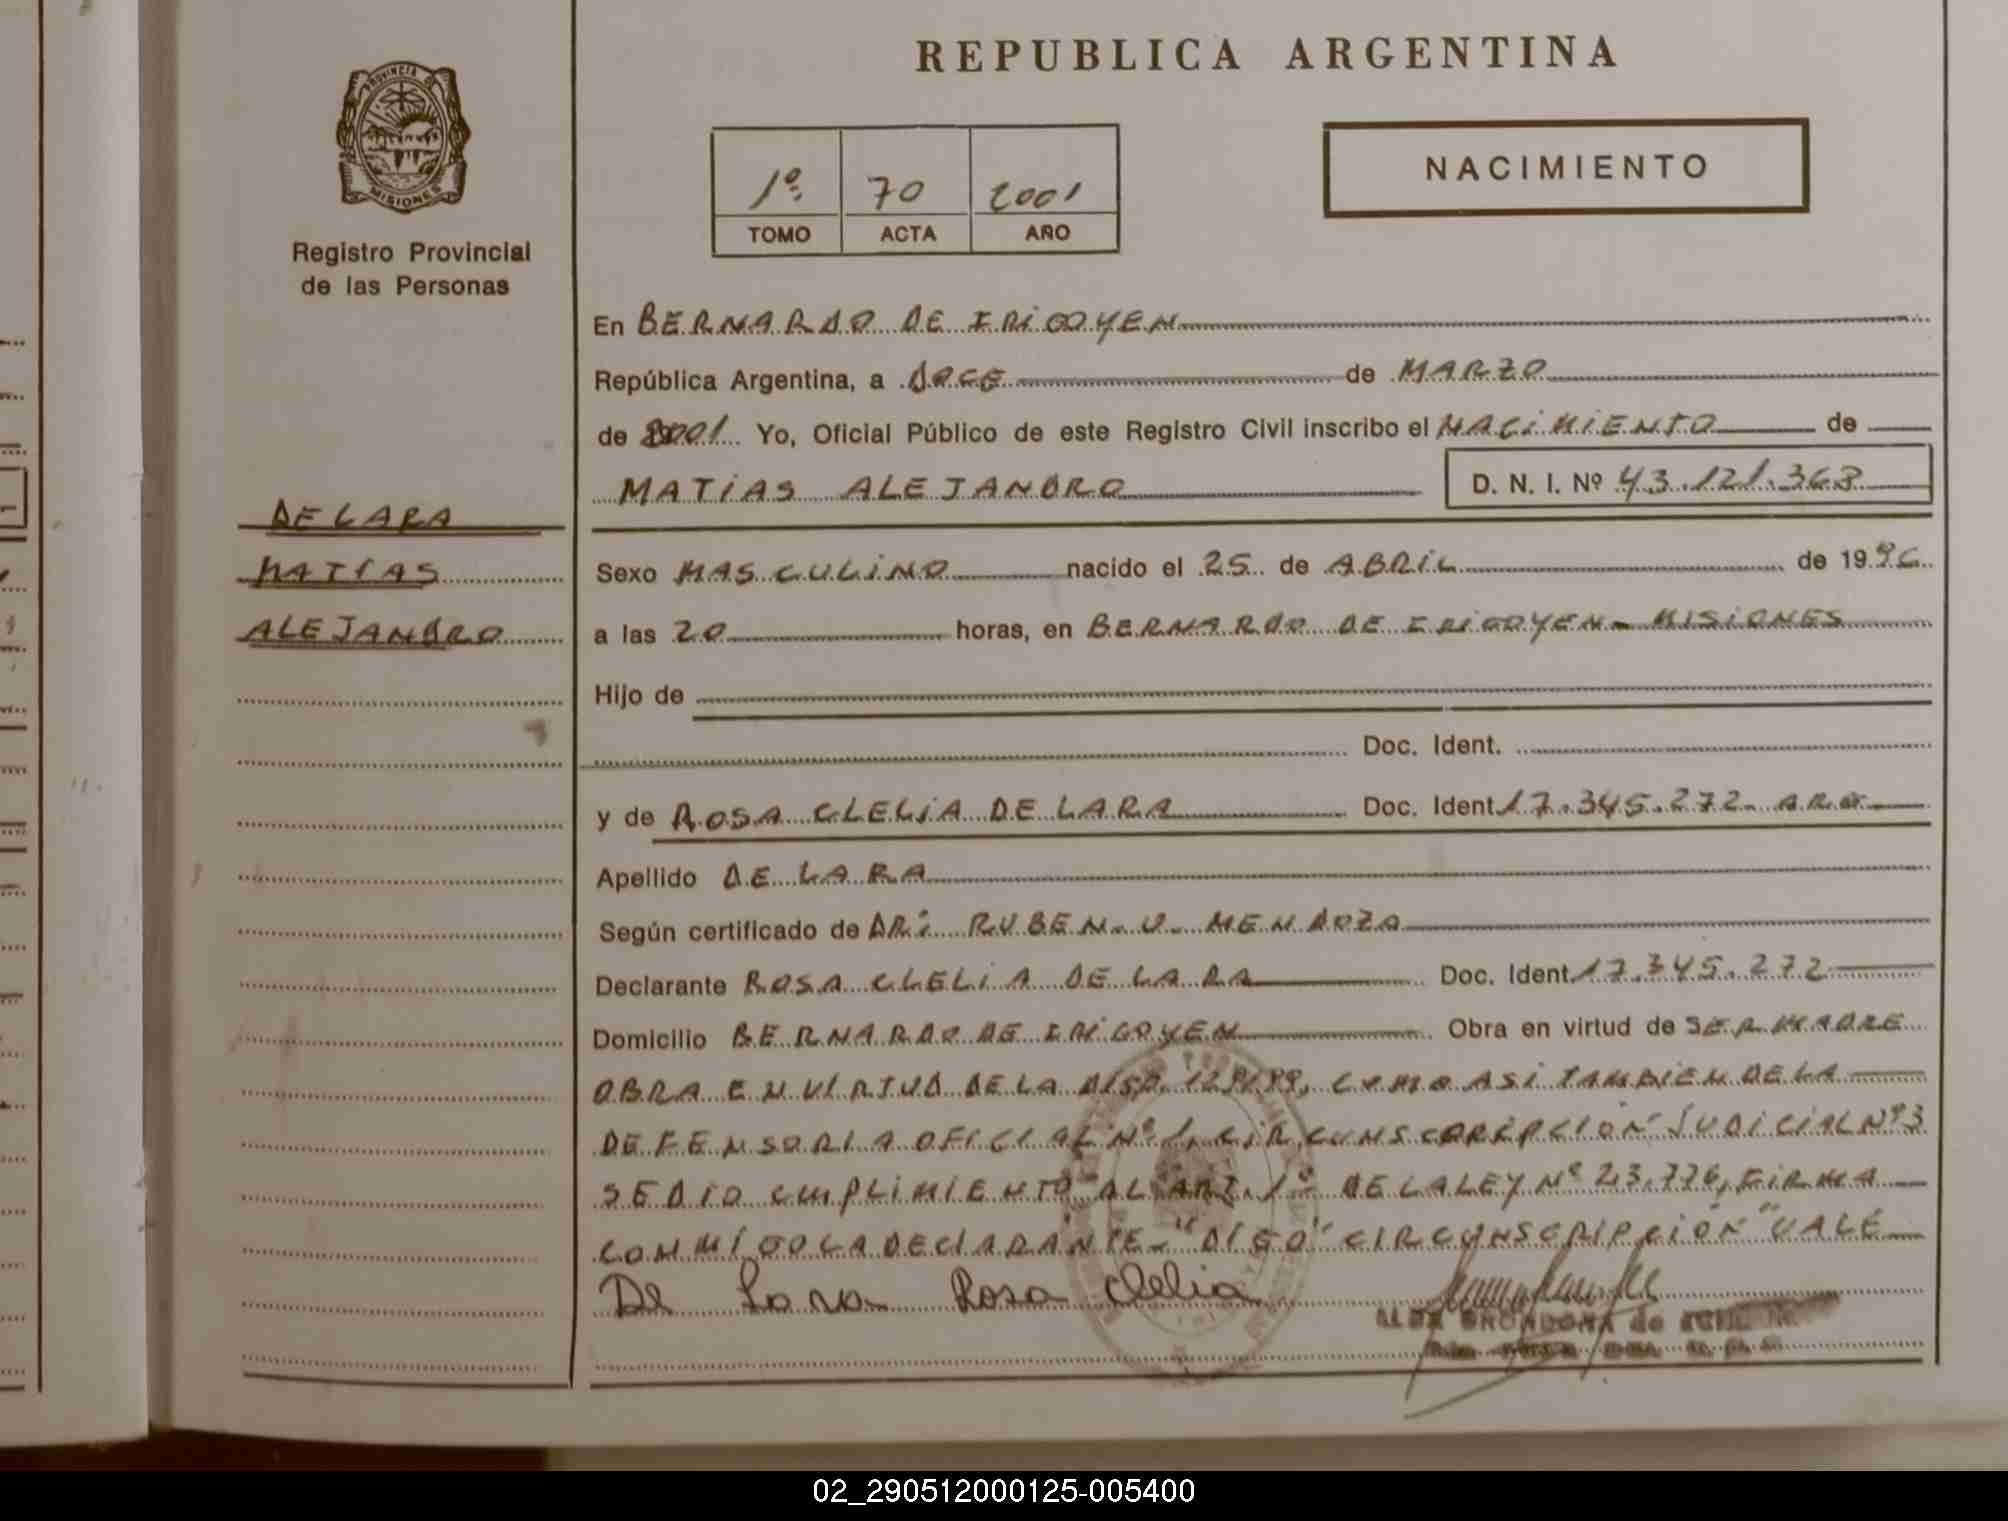 REPUBLICA ARGENTINA
PROVINCIA DE
MISIONES
Registro Provincial
de las Personas
1º 70 2001
TOMO ACTA AÑO
NACIMIENTO
En BERNARDO DE IRIGOYEN
República Argentina, a DOCE de MARZO
de 2001 Yo, Oficial Público de este Registro Civil inscribo el NACIMIENTO de
MATIAS ALEJANDRO D. N. I. Nº 43.121.363
DE LARA
MATIAS
ALEJANDRO
Sexo MASCULINO nacido el 25 de ABRIL de 1996
a las 20 horas, en BERNARDO DE IRIGOYEN - MISIONES
Hijo de
Doc. Ident.
y de ROSA CLELIA DE LARA Doc. Ident 17.345.272- ARG
Apellido DE LARA
Según certificado de DRi RUBEN. V. MENDOZA
Declarante ROSA CLELIA DE LARA Doc. Ident 17.345.272
Domicilio BERNARDO DE IRIGOYEN Obra en virtud de SER MADRE
OBRA EN VIRTUD DE LA DISP. 129/99, COMO ASI TAMBIEN DE LA
DEFENSORIA OFICIAL Nº 1, CIRCUNSCORIPCION JUDICIAL Nº 3
SE DIO CUMPLIMIENTO AL ART. 1º DE LA LEY Nº 23.776, FIRMA
CONMIGO LA DECLARANTE - "DIGO" CIRCUNSCRIPCION "VALE
De Lara Rosa Clelia
ALBA de
02_290512000125-005400